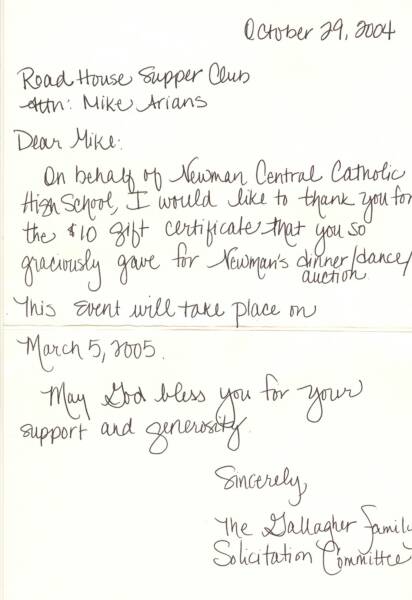 October 29, 2004
Road House Supper Club
Attn: Mike Arians
Dear Mike:
On behalf of Newman Central Catholic
High School, I would like to thank you for
the $10 gift certificate that you so
graciously gave for Newman's dinner/dance/
auction
This event will take place on
March 5, 2005.
May God bless you for your
support and generosity.
Sincerely,
The Gallagher Family
Solicitation Committee